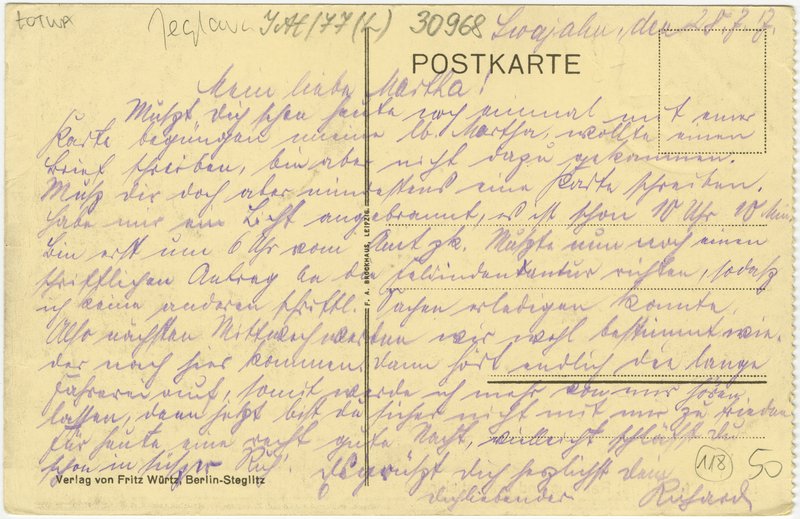 ŁOTWA
JAH/77(L) 30968
den 28.7.17.
POSTKARTE
Mein liebe Martha!
Mußt Dich schon heute noch einmal mit einer
Karte begnügen meine lb. Martha, wollte einen
Brief schreiben, bin aber nicht dazu gekommen.
Muß dir doch aber mindestens eine Karte schreiben.
Habe mir ein Licht angebrannt, es ist schon 10 Uhr 10 Min.
Bin erst um 6 Uhr vom Amt zk. Mußte nun noch einen
schriftlichen Antrag an die richten, sodaß
ich keine anderen schriftl. Sachen erledigen konnte.
Also nächsten Mittwoch werden wir wohl bestimmt wie-
der nach hier kommen. Dann hört endlich die lange
Fahrerei auf, somit werde ich mehr von mir hören
lassen, denn jetzt bist du sicher nicht mit mir zu frieden
Für heute eine recht gute Nacht, vielleicht schläfst du
schon in süßer Ruh'. Es grüßt Dich herzlichst Dein
Dichliebender Richard
F. A. BROCKHAUS, LEIPZIG
Verlag von Fritz Würtz, Berlin-Steglitz
118
50